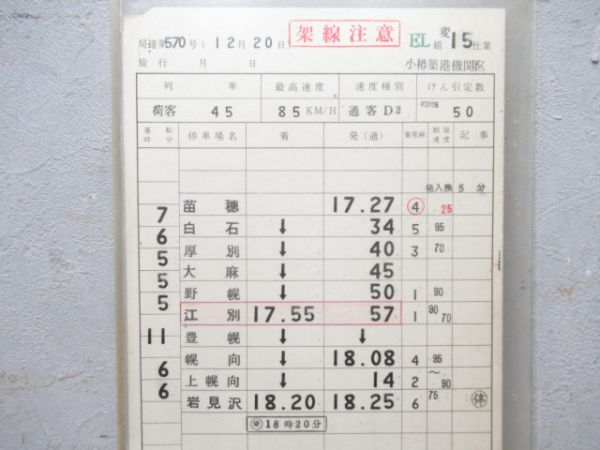 架線注意
局達第570号（12月20日） EL 変組 15仕業
施行 月 日 小樽築港機関区
列車 最高速度 速度種別 けん引定数
荷客 45 85 KM/H 通客D2 ED76 50
運転時分 停車場名 着 発（通） 着発線 制限速度 記事
発入換 5分
苗穂 17.27 ④ 25
7
白石 ↓ 34 5 95
6
厚別 ↓ 40 3 70
5
大麻 ↓ 45
5
野幌 ↓ 50 1 90
5
江別 17.55 57 1 90 70
11
豊幌 ↓ ↓
幌向 ↓ 18.08 4 95
6
上幌向 ↓ 14 2 〜90
6
岩見沢 18.20 18.25 6 75
18時20分